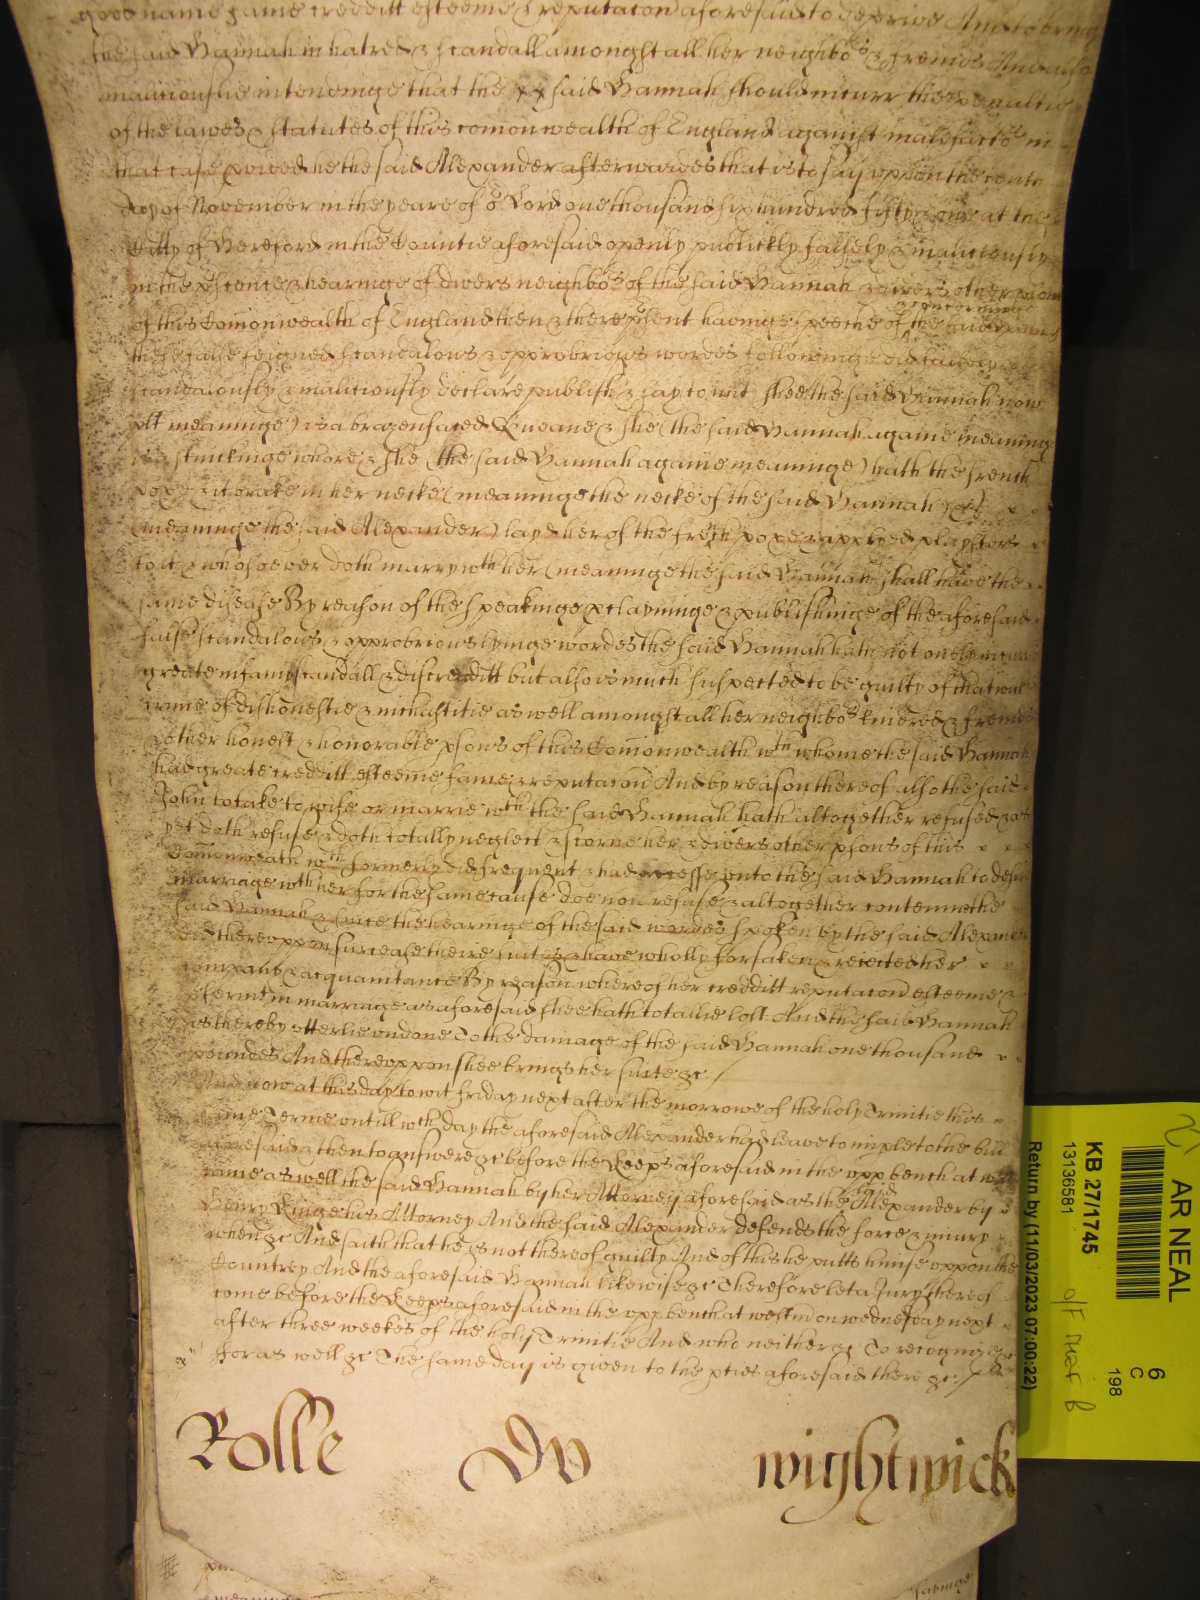 good name fame creditt esteeme & reputacon aforesaid to deprive And to bring
the said Hannah in hatred & scandall amongst all her neighbors & freinds And also
malitiouslie intendinge that the said Hannah should incurr the penaltie
of the lawes & statutes of this comonwealth of England against malefactors in
that case provided he the said Alexander afterwardes that is to say uppon the
day of November in the yeare of or Lord one thousand six hundred fifty & one at the
Citty of Hereford in the Countie aforesaid openly publickly falsely & maliciously
in the psence & hearinge of divers neighbors of the said Hannah & divers other psons
& concerninge
of this Comonwealth of England then & there psent havinge speeche of the said Hannah
these false feigned scandalous & opprobrious wordes followinge did falsely
scandalously & malitiously declare publish & say to wit Shee the said Hannah now
plt meaninge) is a brazenfaced Queane & she (the said Hannah againe meaning
is a stinckinge whore & she (the said Hannah againe meaninge) hath the french
poxe & it brake in her necke (meaninge the necke of the said Hannah) &
(meaninge the said Alexander) layd her of the french poxe & applyed playsters
to it & whosoever doth marry wth her (meaninge the said Hannah shall have the
same disease By reason of the speakinge pclayminge & publishinge of the aforesaid
false scandalous & opprobrious lyinge wordes the said Hannah hath not onely incurred
greate infamy scandall & discreditt but also is much suspected to be guilty of that
crime of dishonestie & inchastitie as well amongst all her neighbors kindred & freinds
& other honest & honorable psons of this Comonwealth wth whome the said Hannah
had greate creditt esteeme fame & reputacon And by reason thereof also the said
John to take to wife or marrie wth the said Hannah hath altogether refused & as
yet doth refuse & doth totally neglect & scorne her & divers other psons of this
Comonwealth wch formerly did frequent & had accesse unto the said Hannah to desire
marriage wth her for the same cause doe now refuse & altogether contemne the
said Hannah & since the hearinge of the said wordes spoken by the said Alexander
did thereuppon surcease theire suites & have wholly forsaken & reiected her
company & acquaintance By reason whereof her creditt reputacon esteeme &
preferment in marriage as aforesaid shee hath totallie lost And the said Hannah
is thereby utterlie undone To the damage of the said Hannah one thousand
poundes And thereuppon shee brings her suite &c
And now at this day to wit friday next after the morrowe of the holy Trinitie this
same Terme untill wch day the aforesaid Alexander had leave to imple to the bill
aforesaid & then to answere &c before the Keeps aforesaid in the upp bench at
came as well the said Hannah by her Attorney aforesaid as the said Alexander by
Henry Kinge his Attorney And the said Alexander defends the force & iniury
when &c And saith that he is not thereof guilty And of this he putts himse uppon the
Countrey And the aforesaid Hannah likewise &c Therefore let a Jury thereof
come before the Keeps aforesaid in the upp bench at westm on wednesday next
after three weekes of the holy Trinitie And who neither &c To recognize &c
for as well &c The same day is given to the pties aforesaid there &c
Rolle Do wightwick
AR NEAL
KB 27/1745
13136581
Return by (11/03/2023 07:00:22)
6
C
198